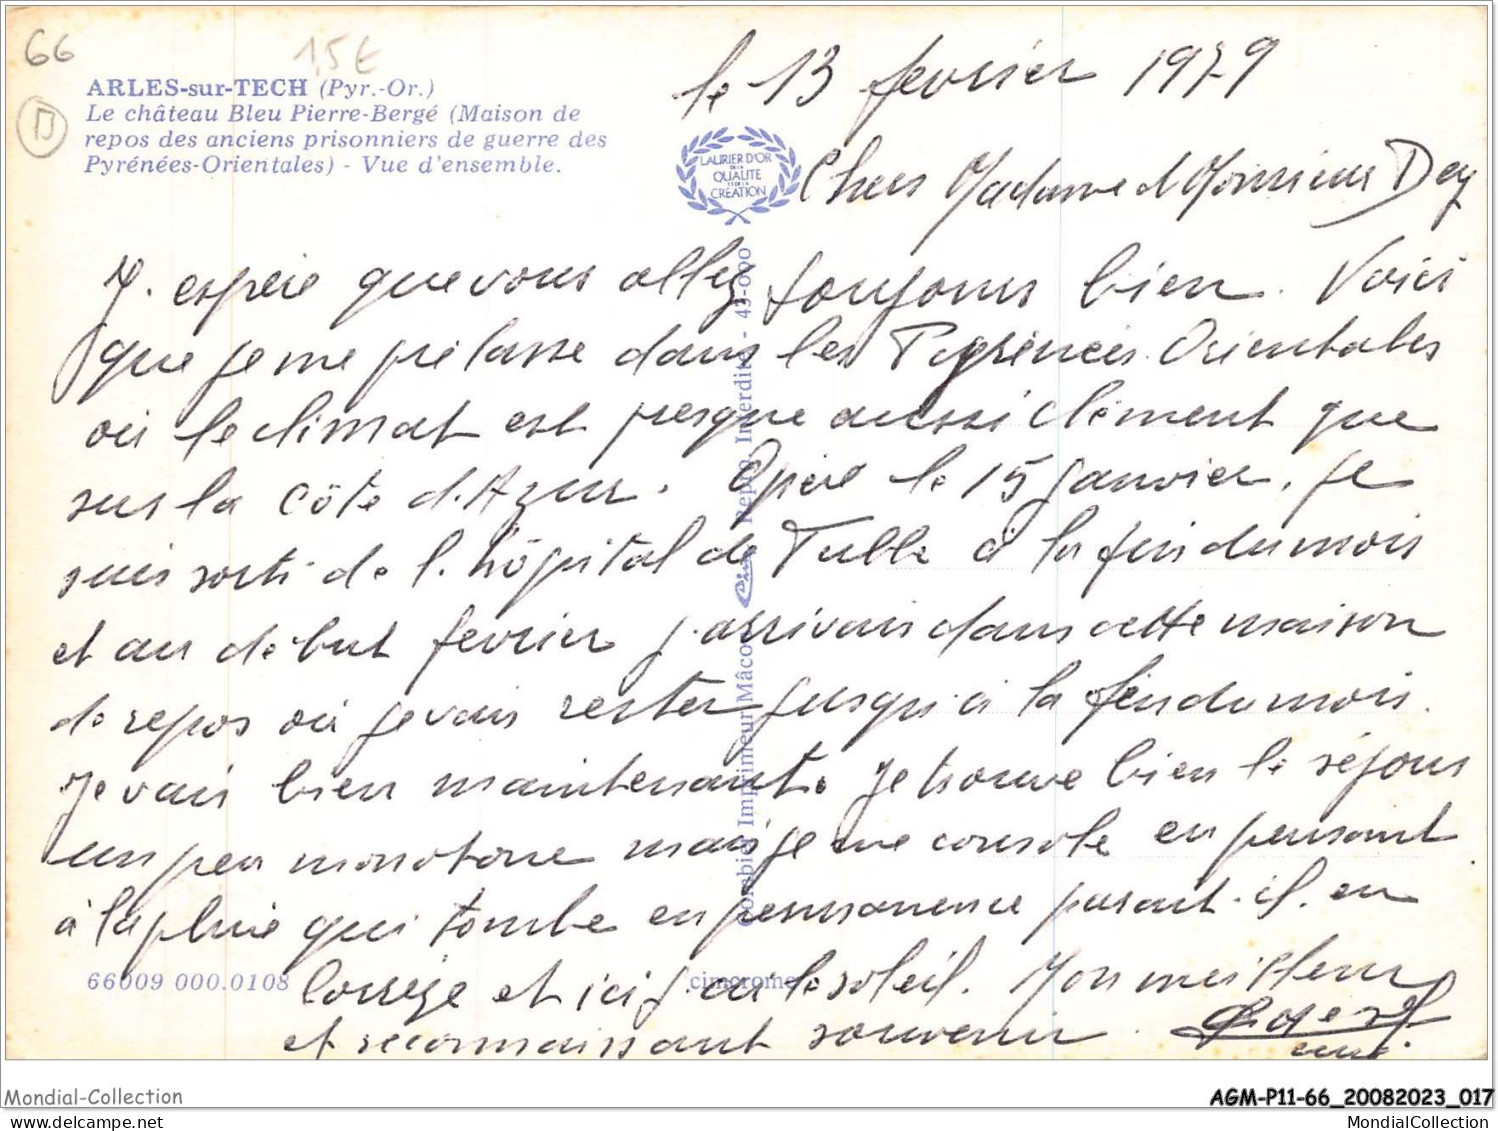 66
1,5€
ARLES-sur-TECH (Pyr.-Or.)
Le château Bleu Pierre-Bergé (Maison de
repos des anciens prisonniers de guerre des
Pyrénées-Orientales) - Vue d'ensemble.
LAURIER D'OR
DE LA
QUALITÉ
ET DE LA
CRÉATION
le 13 février 1979
Chers Madame et Monsieur Dey
J'espère que vous allez toujours bien. Voici
que je me prélasse dans les Pyrénées Orientales
où le climat est presque aussi clément que
sur la Côte d'Azur. Opéré le 15 janvier, je
suis sorti de l'hôpital de Tulle à la fin du mois
et au début février j'arrivais dans cette maison
de repos où je vais rester jusqu'à la fin du mois.
Je vais bien maintenant. Je trouve bien le séjour
un peu monotone mais je me console en pensant
à la pluie qui tombe en permanence paraît-il en
Corrèze et ici j'ai le soleil. Mon meilleur
et reconnaissant souvenir.
Combier Imprimeur Mâcon Cim Repro. Interdite - 43-000
66009 000.0108
cimcrome
Mondial-Collection
AGM-P11-66_20082023_017
mondialcollection.com
MondialCollection